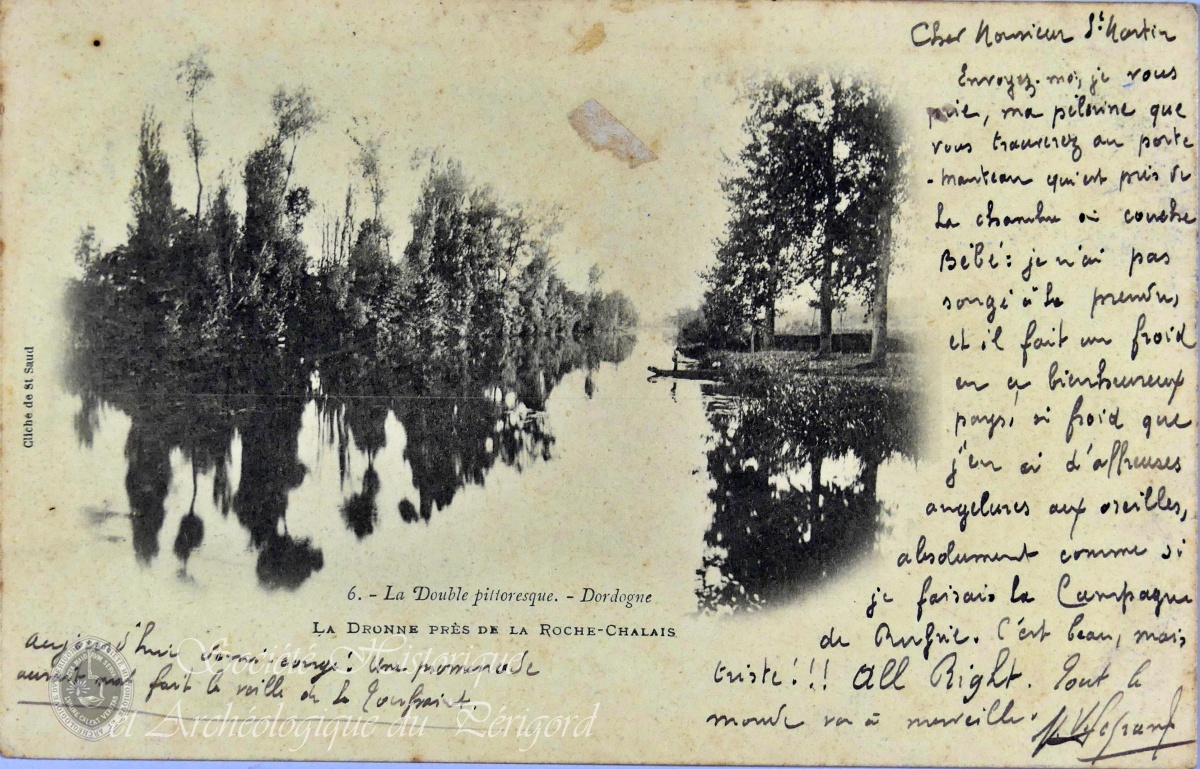 Cher Monsieur St Martin
Envoyez-moi, je vous
prie, ma pèlerine que
vous trouverez au porte
-manteau qu'est près de
la chambre où couche
Bébé : je n'ai pas
songé à la prendre,
et il fait un froid
en ce bienheureux
pays, si froid que
j'en ai d'affreuses
angelures aux oreilles,
absolument comme si
je faisais la Campagne
de Russie. C'est beau, mais
triste!!! All Right. Tout le
monde va à merveille.
Cliché de St Saud
6. - La Double pittoresque. - Dordogne
LA DRONNE PRÈS DE LA ROCHE-CHALAIS
aujourd'hui Une promenade
fait la veille de la Toussaint.
Société Historique
et Archéologique du Périgord